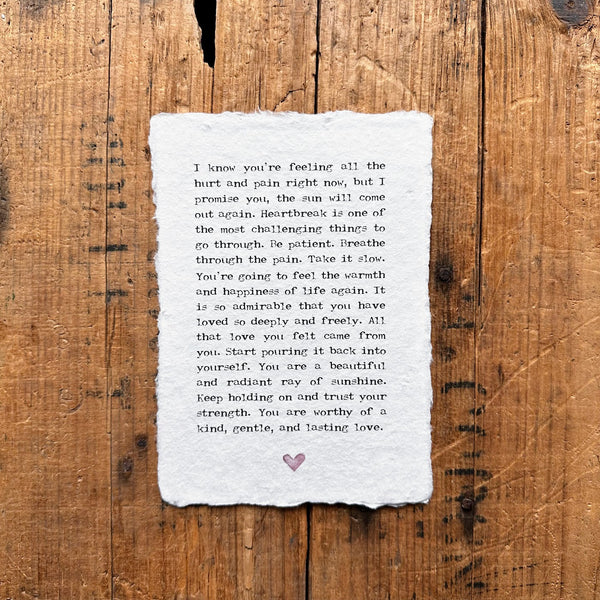 I know you're feeling all the
hurt and pain right now, but I
promise you, the sun will come
out again. Heartbreak is one of
the most challenging things to
go through. Be patient. Breathe
through the pain. Take it slow.
You're going to feel the warmth
and happiness of life again. It
is so admirable that you have
loved so deeply and freely. All
that love you felt came from
you. Start pouring it back into
yourself. You are a beautiful
and radiant ray of sunshine.
Keep holding on and trust your
strength. You are worthy of a
kind, gentle, and lasting love.